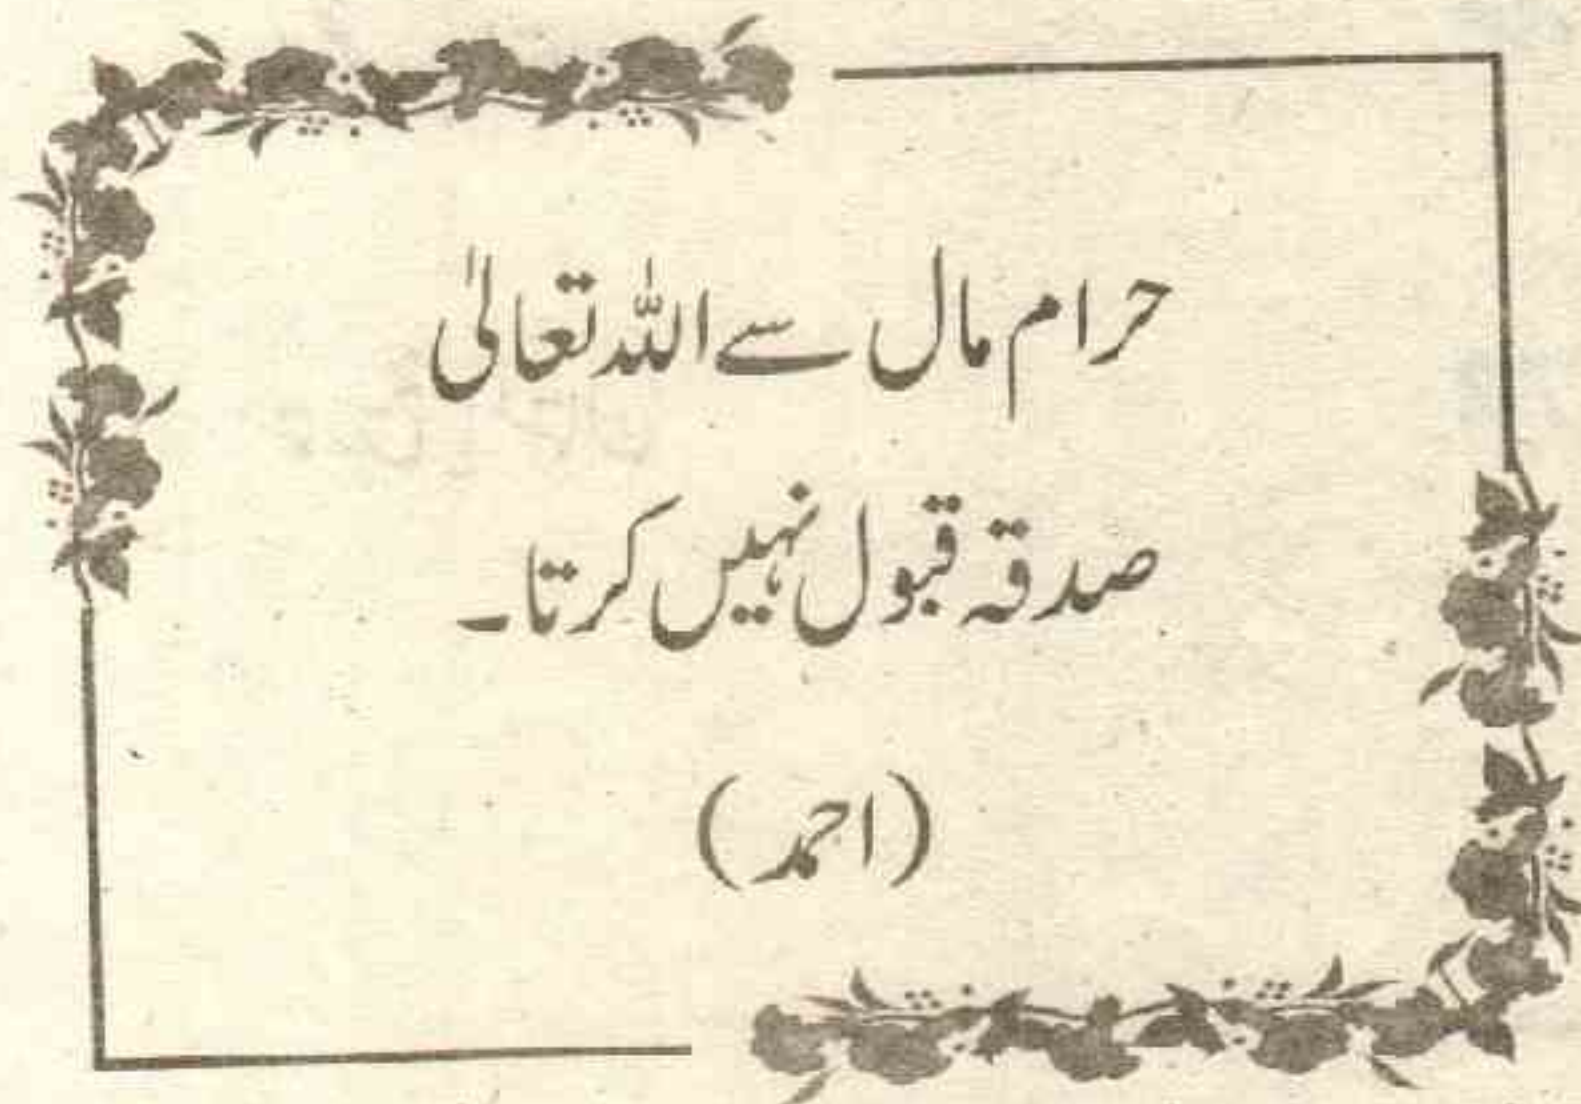 حرام مال سے اللہ تعالیٰ
صدقہ قبول نہیں کرتا۔
(احمد)